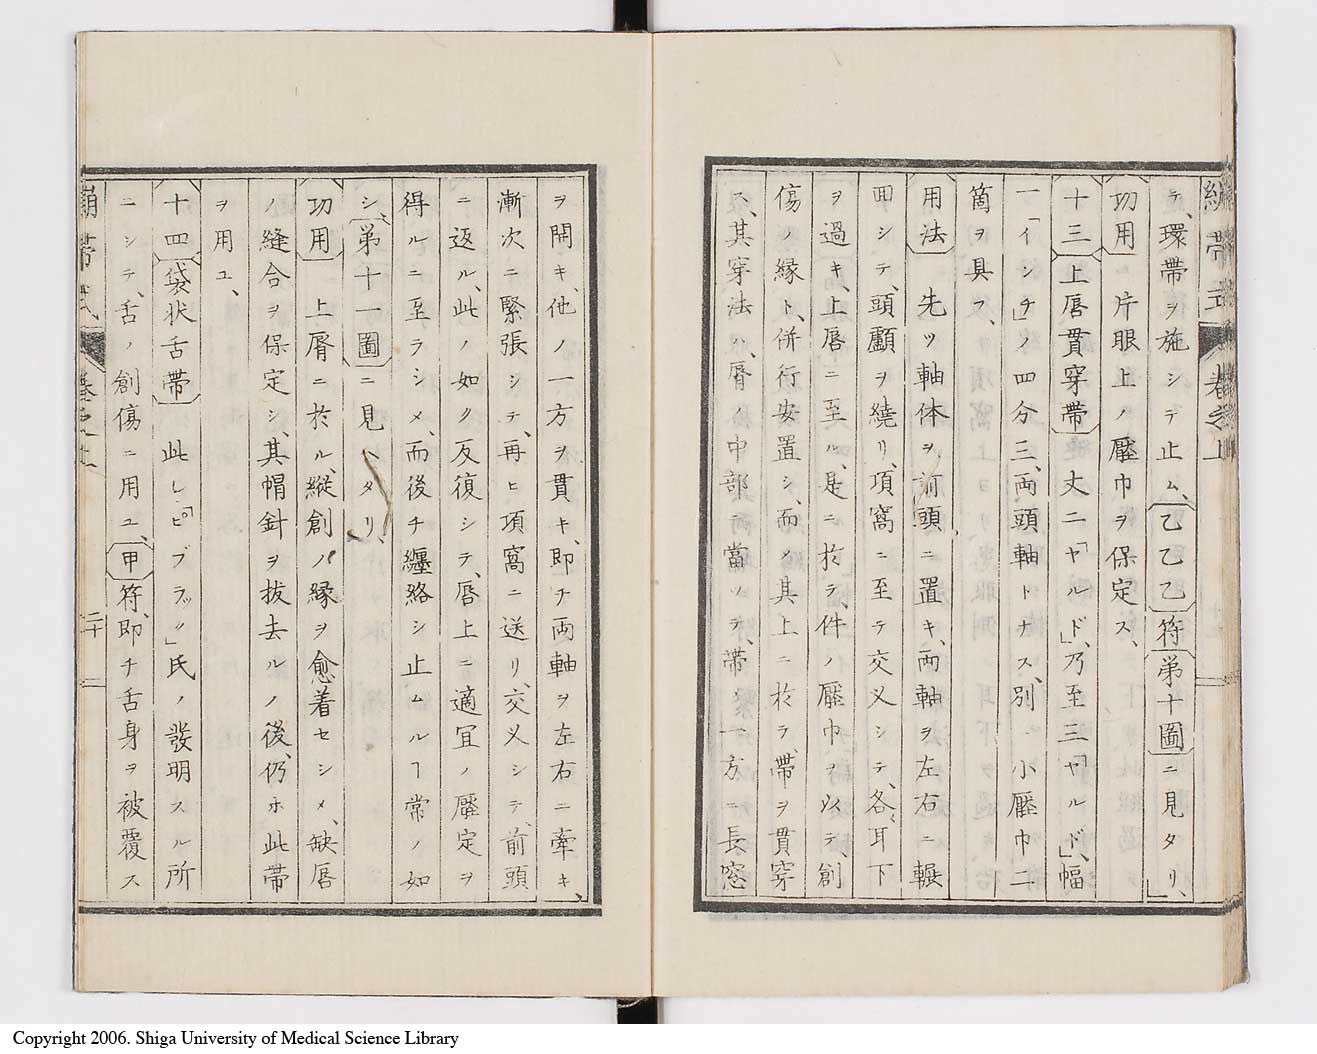 繃帯式 卷之上
テ、環帯ヲ施シテ止ム、乙乙乙符第十圖ニ見タリ、」
功用 片眼上ノ壓巾ヲ保定ス、
十三 上唇貫穿帯 丈二「ヤルド」、乃至三「ヤルド」、幅
一「インチ」ノ四分三、両頭軸トナス、別ニ小壓巾二
箇ヲ具フ、
用法 先ツ軸体ヲ前頭ニ置キ、両軸ヲ左右ニ輾
囬シテ、頭顱ヲ繞リ、項窩ニ至テ交叉シテ、各、耳下
ヲ過キ、上唇ニ至ル、是ニ於テ、件ノ壓巾ヲ以テ、創
傷ノ縁ト、併行安置シ、而メ其上ニ於テ、帯ヲ貫穿
ス、其穿法ハ、脣ノ中部ニ當ツテ、帯ノ一方ニ長窓
ヲ開キ、他ノ一方ヲ貫キ、即チ両軸ヲ左右ニ牽キ、
漸次ニ緊張シテ、再ヒ項窩ニ送リ、交叉シテ、前頭
ニ返ル、此ノ如ク反復シテ、唇上ニ適宜ノ壓定ヲ
得ルニ至ラシメ、而後チ纏絡シ止ムルヿ常ノ如
シ、第十一圖ニ見ヘタリ、
功用 上脣ニ於ル、縦創ノ縁ヲ愈着セシメ、缺唇
ノ縫合ヲ保定シ、其帽針ヲ拔去ルノ後、仍ホ此帯
ヲ用ユ、
十四 袋状舌帯 此レ「ピブラッツ」氏ノ發明スル所
ニシテ、舌ノ創傷ニ用ユ、甲符、即チ舌身ヲ被覆ス
繃帯式 卷之上 二十二
Copyright 2006. Shiga University of Medical Science Library